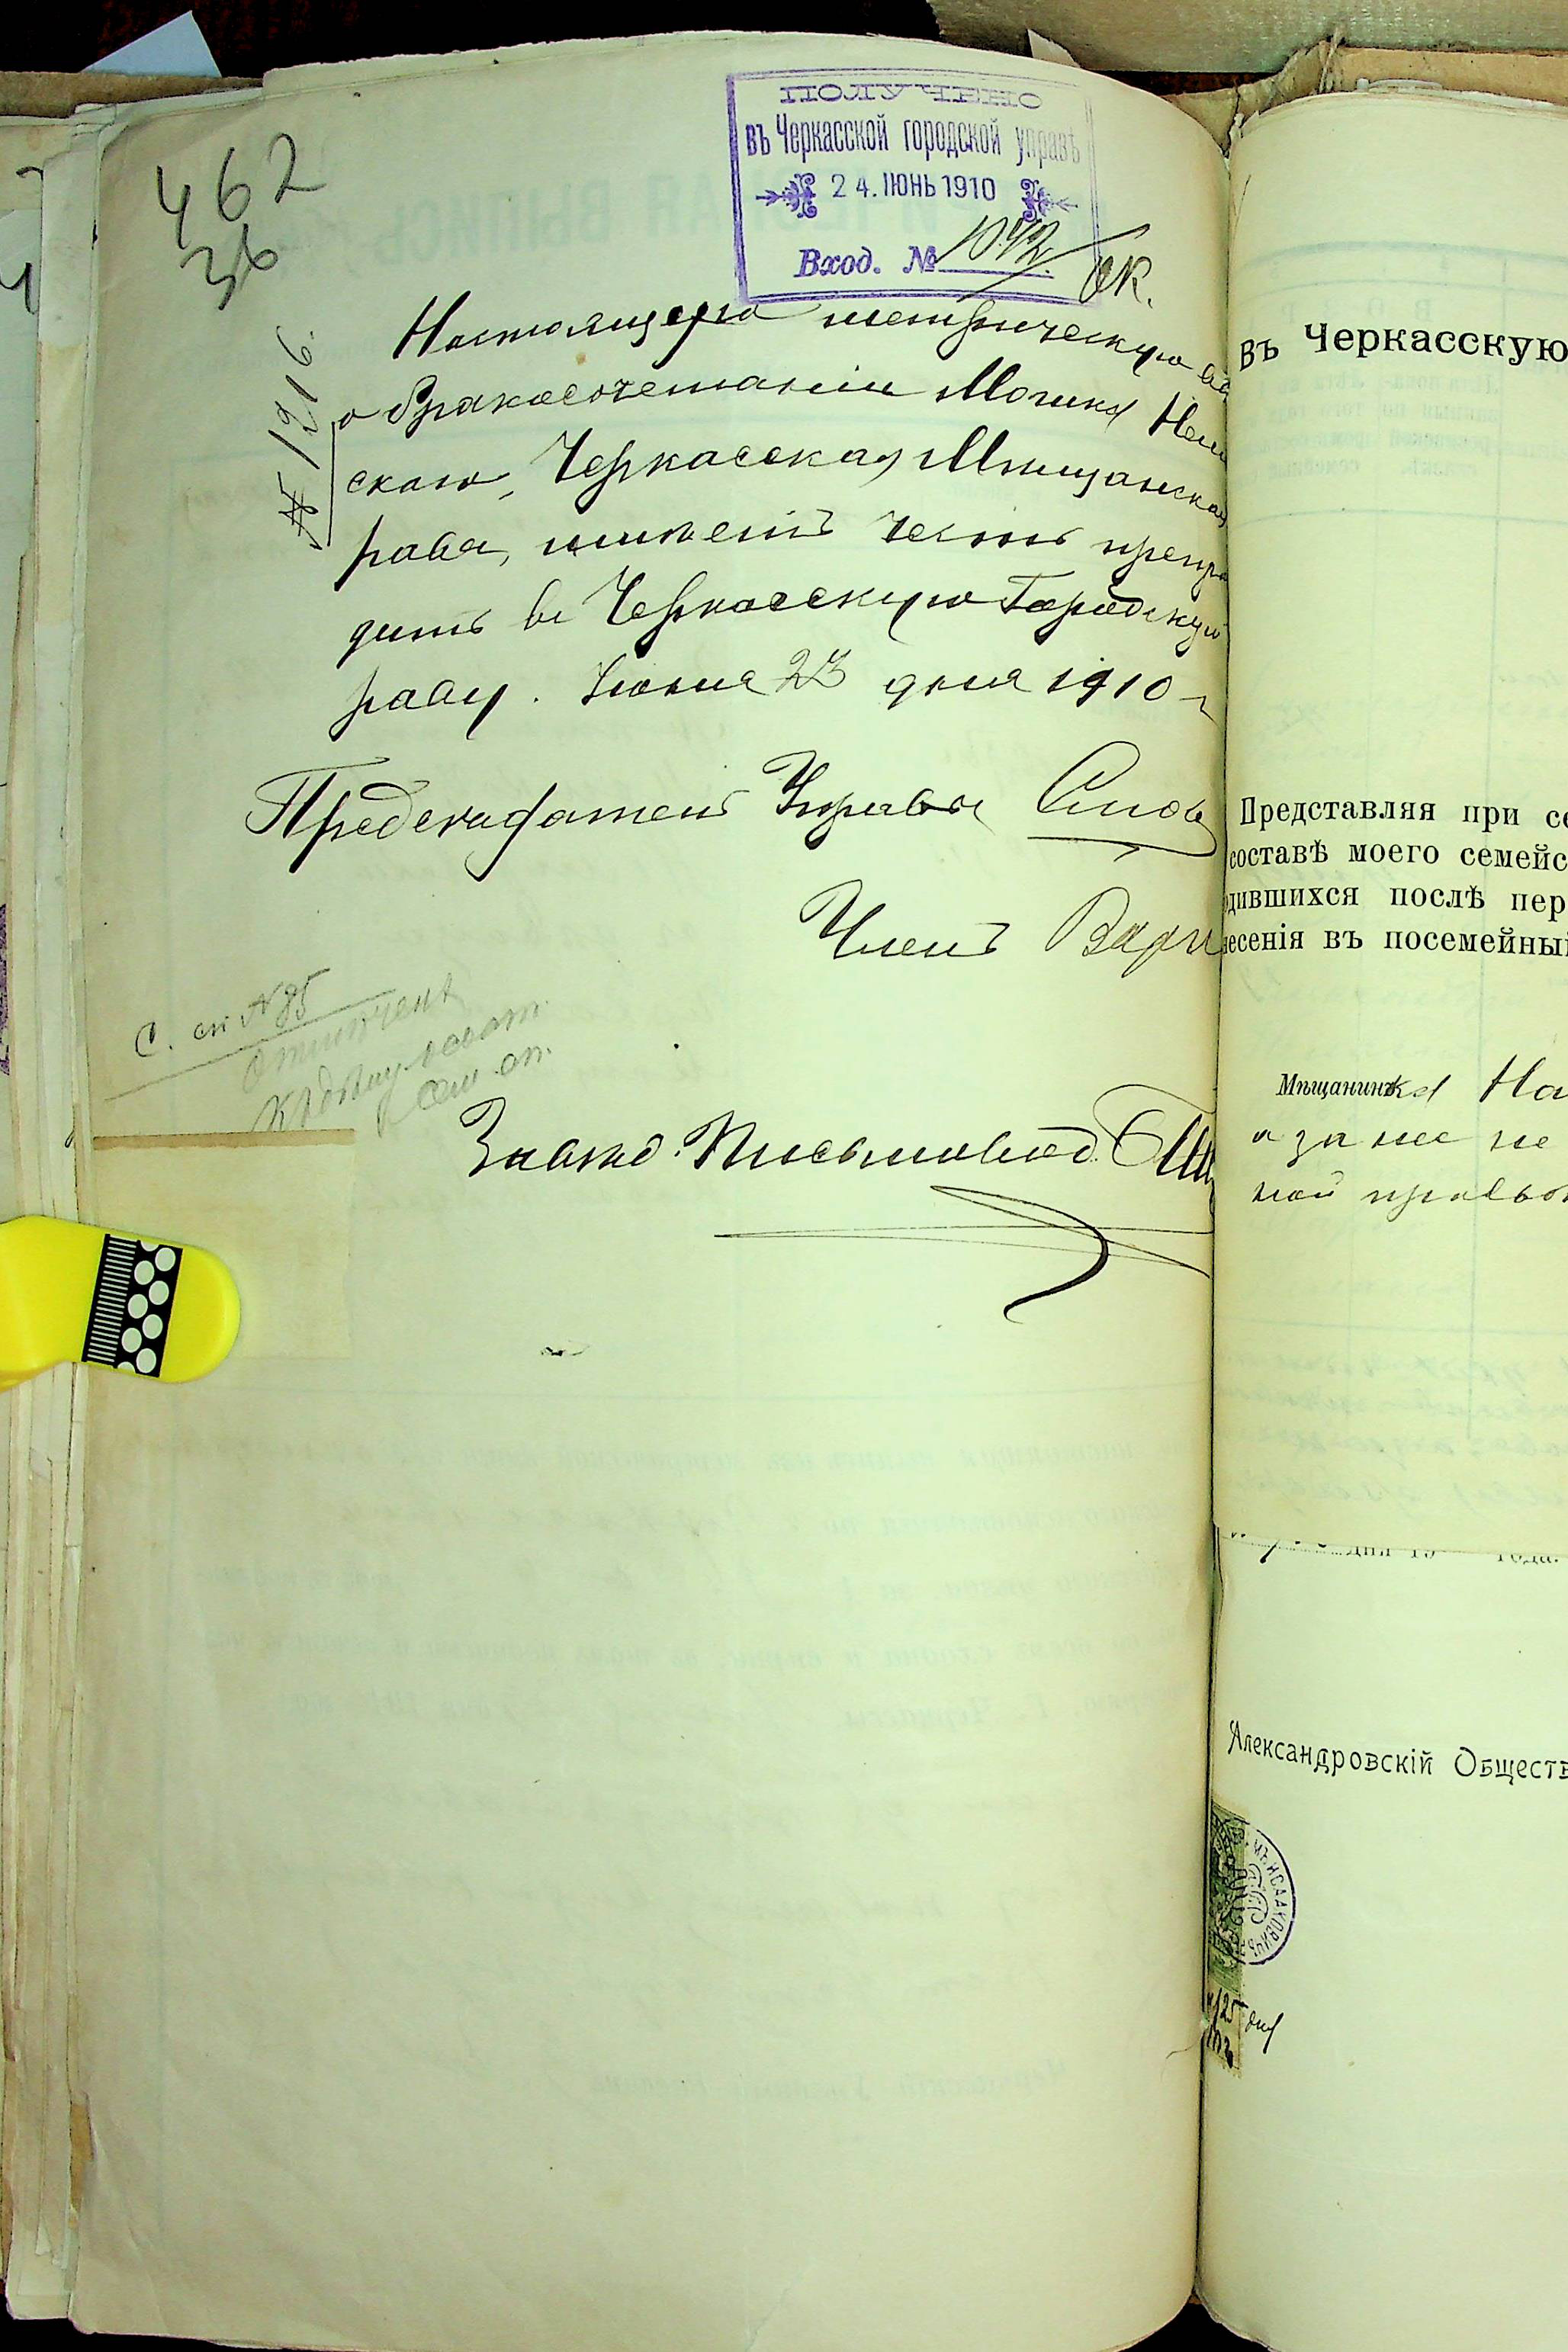 462
36
ПОЛУЧЕНО
въ Черкасской городской управѣ
24. ІЮНЬ 1910
Вход. № 1042/ОК.
№ 1216.
Настоящую метрическую
о бракосочетаніи Мошки
скаго, Черкасская Мѣщанская
рава, имѣетъ честь препро
дить въ Черкасскую Городскую
раву. Іюня 23 дня 1910 г
Предсѣдатель Управы
Членъ
С. сп №85
отмѣчена
сем сп.
Завѣд. Письмовод.
въ Черкасскую
Представляя при се
составѣ моего семейс
дившихся послѣ пер
несенія въ посемейный
Мѣщанинка На
а за нее не
ной
дня 19 года.
Александровскій Обществ